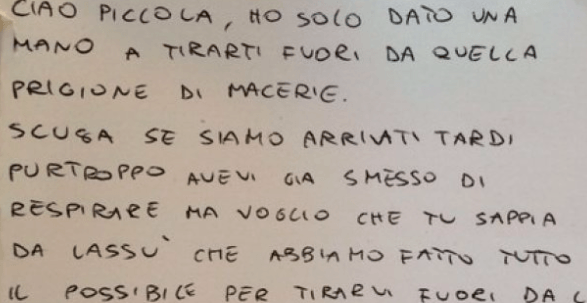 CIAO PICCOLA, HO SOLO DATO UNA
MANO A TIRARTI FUORI DA QUELLA
PRIGIONE DI MACERIE.
SCUSA SE SIAMO ARRIVATI TARDI
PURTROPPO AVEVI GIA SMESSO DI
RESPIRARE MA VOGLIO CHE TU SAPPIA
DA LASSU' CHE ABBIAMO FATTO TUTTO
IL POSSIBILE PER TIRARVI FUORI DA